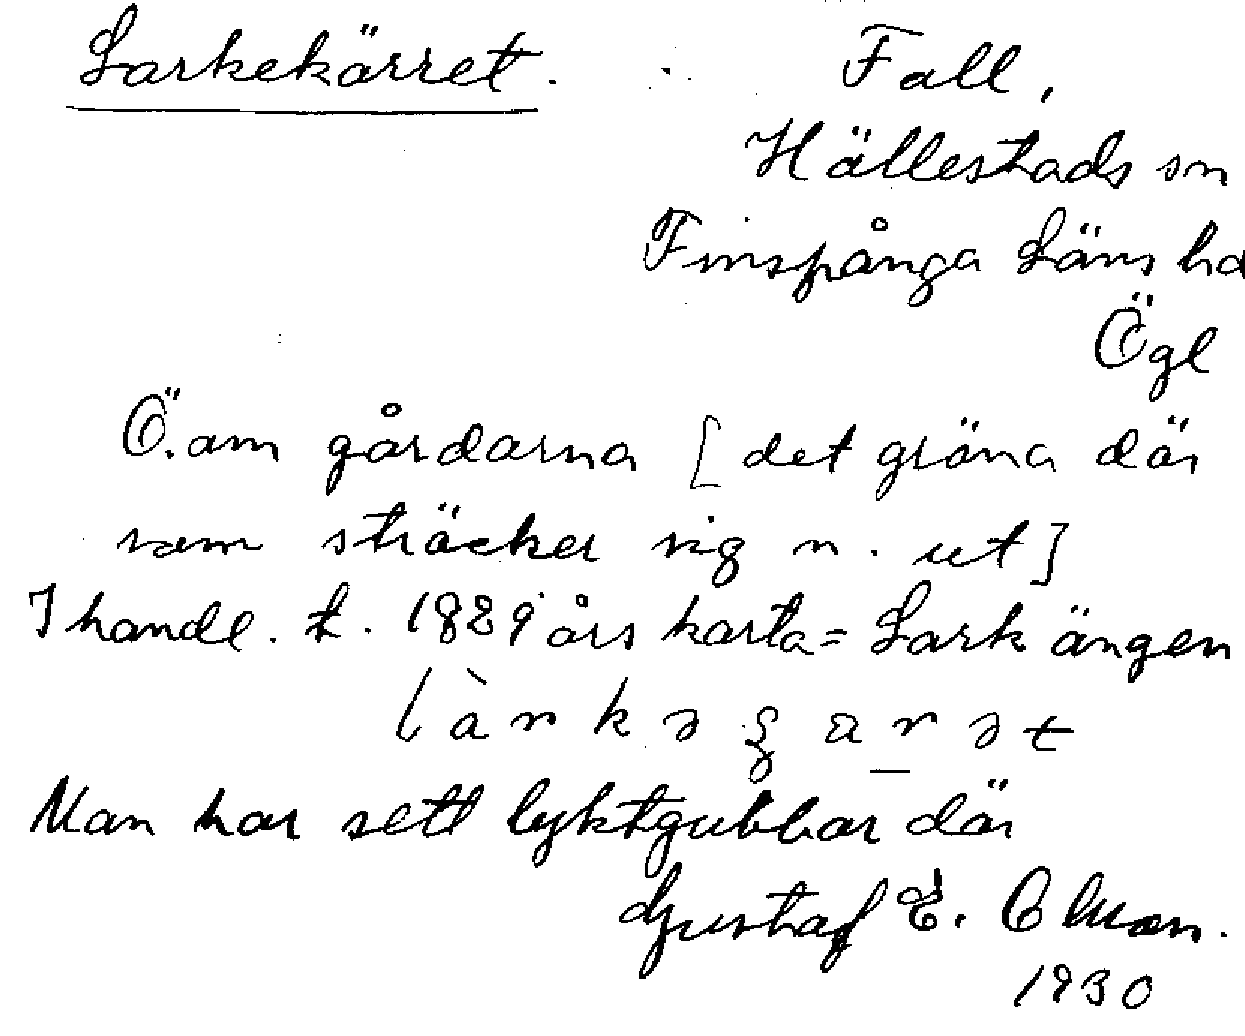 Larkekärret. Fall,
Hällestads sn
Finspånga Läns hd
Ögl
Ö. om gårdarna [det gröna där
som sträcker sig n. ut]
I handl. t. 1829 års karta = Lark ängen
Man har sett lyktgubbar där
Gustaf E.
1930